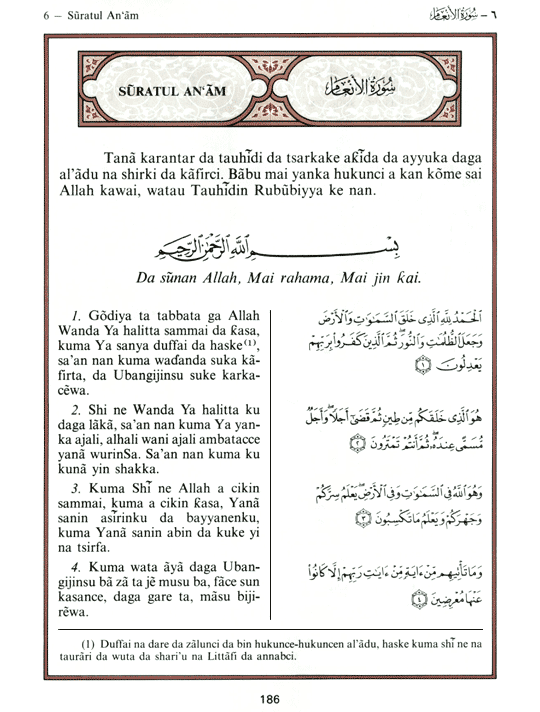 6 — Sũratul An‘ãm
٦ - سُورَةُ الأَنْعَامِ
SŨRATUL AN‘ÃM
سُورَةُ الأَنْعَامِ
Tanã karantar da tauhĩdi da tsarkake aƙĩda da ayyuka daga
al’ãdu na shirki da kãfirci. Bãbu mai yanka hukunci a kan kõme sai
Allah kawai, watau Tauhĩdin Rubũbiyya ke nan.
بِسْمِ ٱللَّهِ ٱلرَّحْمَٰنِ ٱلرَّحِيمِ
Da sũnan Allah, Mai rahama, Mai jin ƙai.
1. Gõdiya ta tabbata ga Allah
Wanda Ya halitta sammai da ƙasa,
kuma Ya sanya duffai da haske(1),
sa’an nan kuma waɗanda suka kã-
firta, da Ubangijinsu suke karka-
cẽwa.
2. Shi ne Wanda Ya halitta ku
daga lãkã, sa’an nan kuma Ya yan-
ka ajali, alhali wani ajali ambatacce
yanã wurinSa. Sa’an nan kuma ku
kunã yin shakka.
3. Kuma Shĩ ne Allah a cikin
sammai, kuma a cikin ƙasa, Yanã
sanin asĩrinku da bayyanenku,
kuma Yanã sanin abin da kuke yi
na tsirfa.
4. Kuma wata ãyã daga Uban-
gijinsu bã zã ta jẽ musu ba, fãce sun
kasance, daga gare ta, mãsu biji-
rẽwa.
ٱلْحَمْدُ لِلَّهِ ٱلَّذِى خَلَقَ ٱلسَّمَٰوَٰتِ وَٱلْأَرْضَ
وَجَعَلَ ٱلظُّلُمَٰتِ وَٱلنُّورَ ثُمَّ ٱلَّذِينَ كَفَرُوا۟ بِرَبِّهِمْ
يَعْدِلُونَ ١
هُوَ ٱلَّذِى خَلَقَكُم مِّن طِينٍ ثُمَّ قَضَىٰٓ أَجَلًا وَأَجَلٌ
مُّسَمًّى عِندَهُۥ ثُمَّ أَنتُمْ تَمْتَرُونَ ٢
وَهُوَ ٱللَّهُ فِى ٱلسَّمَٰوَٰتِ وَفِى ٱلْأَرْضِ يَعْلَمُ سِرَّكُمْ
وَجَهْرَكُمْ وَيَعْلَمُ مَا تَكْسِبُونَ ٣
وَمَا تَأْتِيهِم مِّنْ ءَايَةٍ مِّنْ ءَايَٰتِ رَبِّهِمْ إِلَّا كَانُوا۟
عَنْهَا مُعْرِضِينَ ٤
(1) Duffai na dare da zãlunci da bin hukunce-hukuncen al’ãdu, haske kuma shĩ ne na
taurãri da wuta da shari’u na Littãfi da annabci.
186